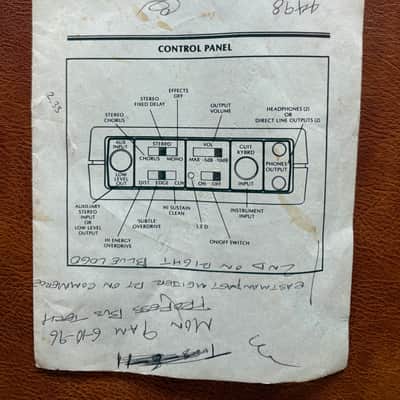 4498
CONTROL PANEL
2.35
EFFECTS
OFF
STEREO
FIXED DELAY
STEREO
CHORUS
OUTPUT
VOLUME
HEADPHONES (2)
OR
DIRECT LINE OUTPUTS (2)
AUX
INPUT
STEREO
CHORUS MONO
VOL
MAX -5dB -10dB
GUIT
KYBRD
PHONES/
OUTPUT
LOW
LEVEL
OUT
DIST. EDGE CLN
ON OFF
INPUT
AUXILIARY
STEREO
INPUT
OR
LOW LEVEL
OUTPUT
HI ENERGY
OVERDRIVE
SUBTLE
OVERDRIVE
HI SUSTAIN
CLEAN
L E D
ON/OFF SWITCH
INSTRUMENT
INPUT
2ND ON RIGHT BLUE LOGO
EASTMAN PAST RT ON COMMERCE
BUS TECH
MON 9AM 6-10-96